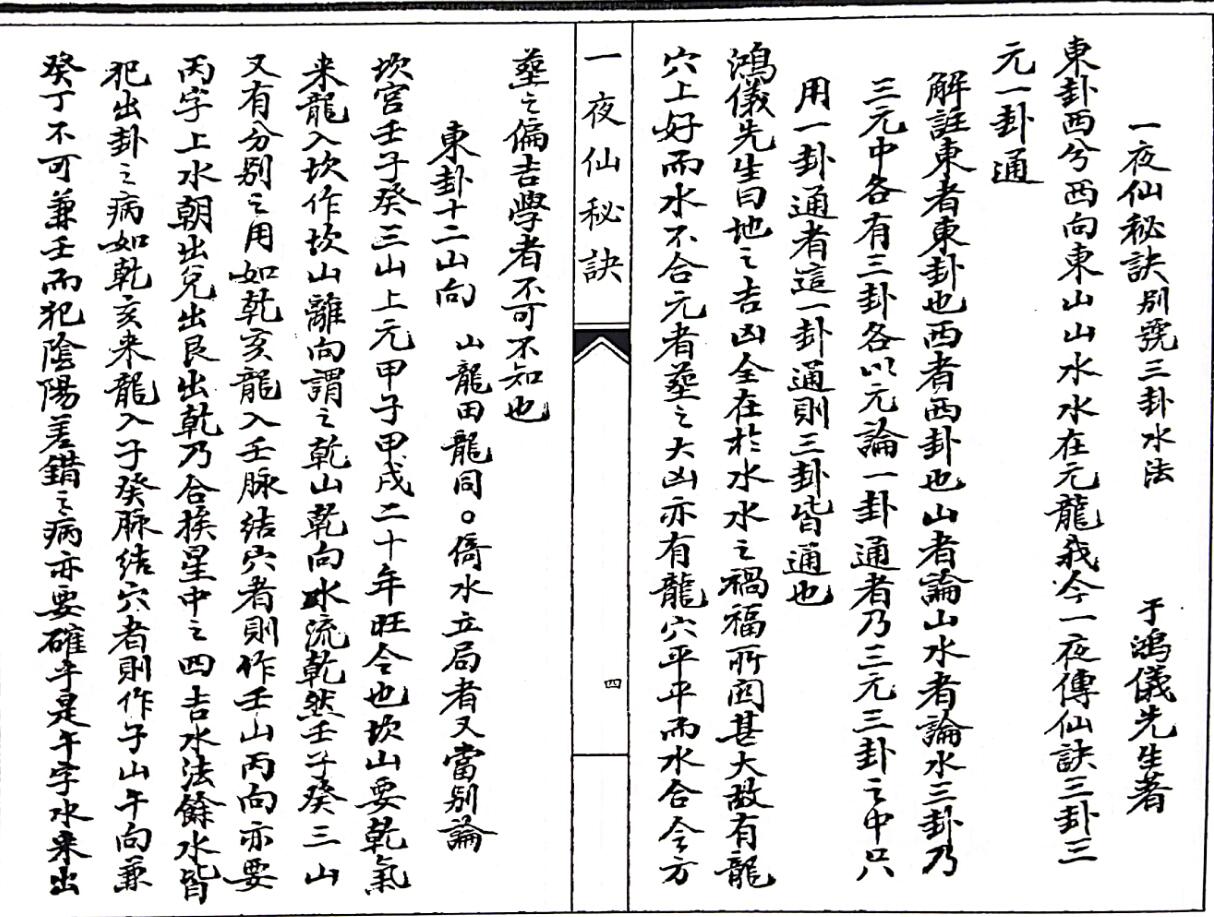 一夜仙秘訣别號三卦水法 于鴻儀先生著
東卦西兮西向東山山水水在元龍我今一夜傳仙訣三卦三
元一卦通
解註東者東卦也西者西卦也山者論山水者論水三卦乃
三元中各有三卦各以元論一卦通者乃三元三卦之中只
用一卦通者這一卦通則三卦皆通也
鴻儀先生曰地之吉凶全在於水水之禍福所関甚大故有龍
穴上好而水不合元者塟之大凶亦有龍穴平平而水合令方
一夜仙秘訣
四
塟之偏吉學者不可不知也
東卦十二山向 山龍田龍同。倚水立局者又當别論
坎宫壬子癸三山上元甲子甲戌二十年旺令也坎山要乾氣
来龍入坎作坎山離向謂之乾山乾向水流乾然壬子癸三山
又有分别之用如乾亥龍入壬脉结穴者則作壬山丙向亦要
丙字上水朝出兌出艮出乾乃合挨星中之四吉水法餘水皆
犯出卦之病如乾亥来龍入子癸脉结穴者則作子山午向兼
癸丁不可兼壬而犯陰陽差錯之病亦要確乎是午字水来出